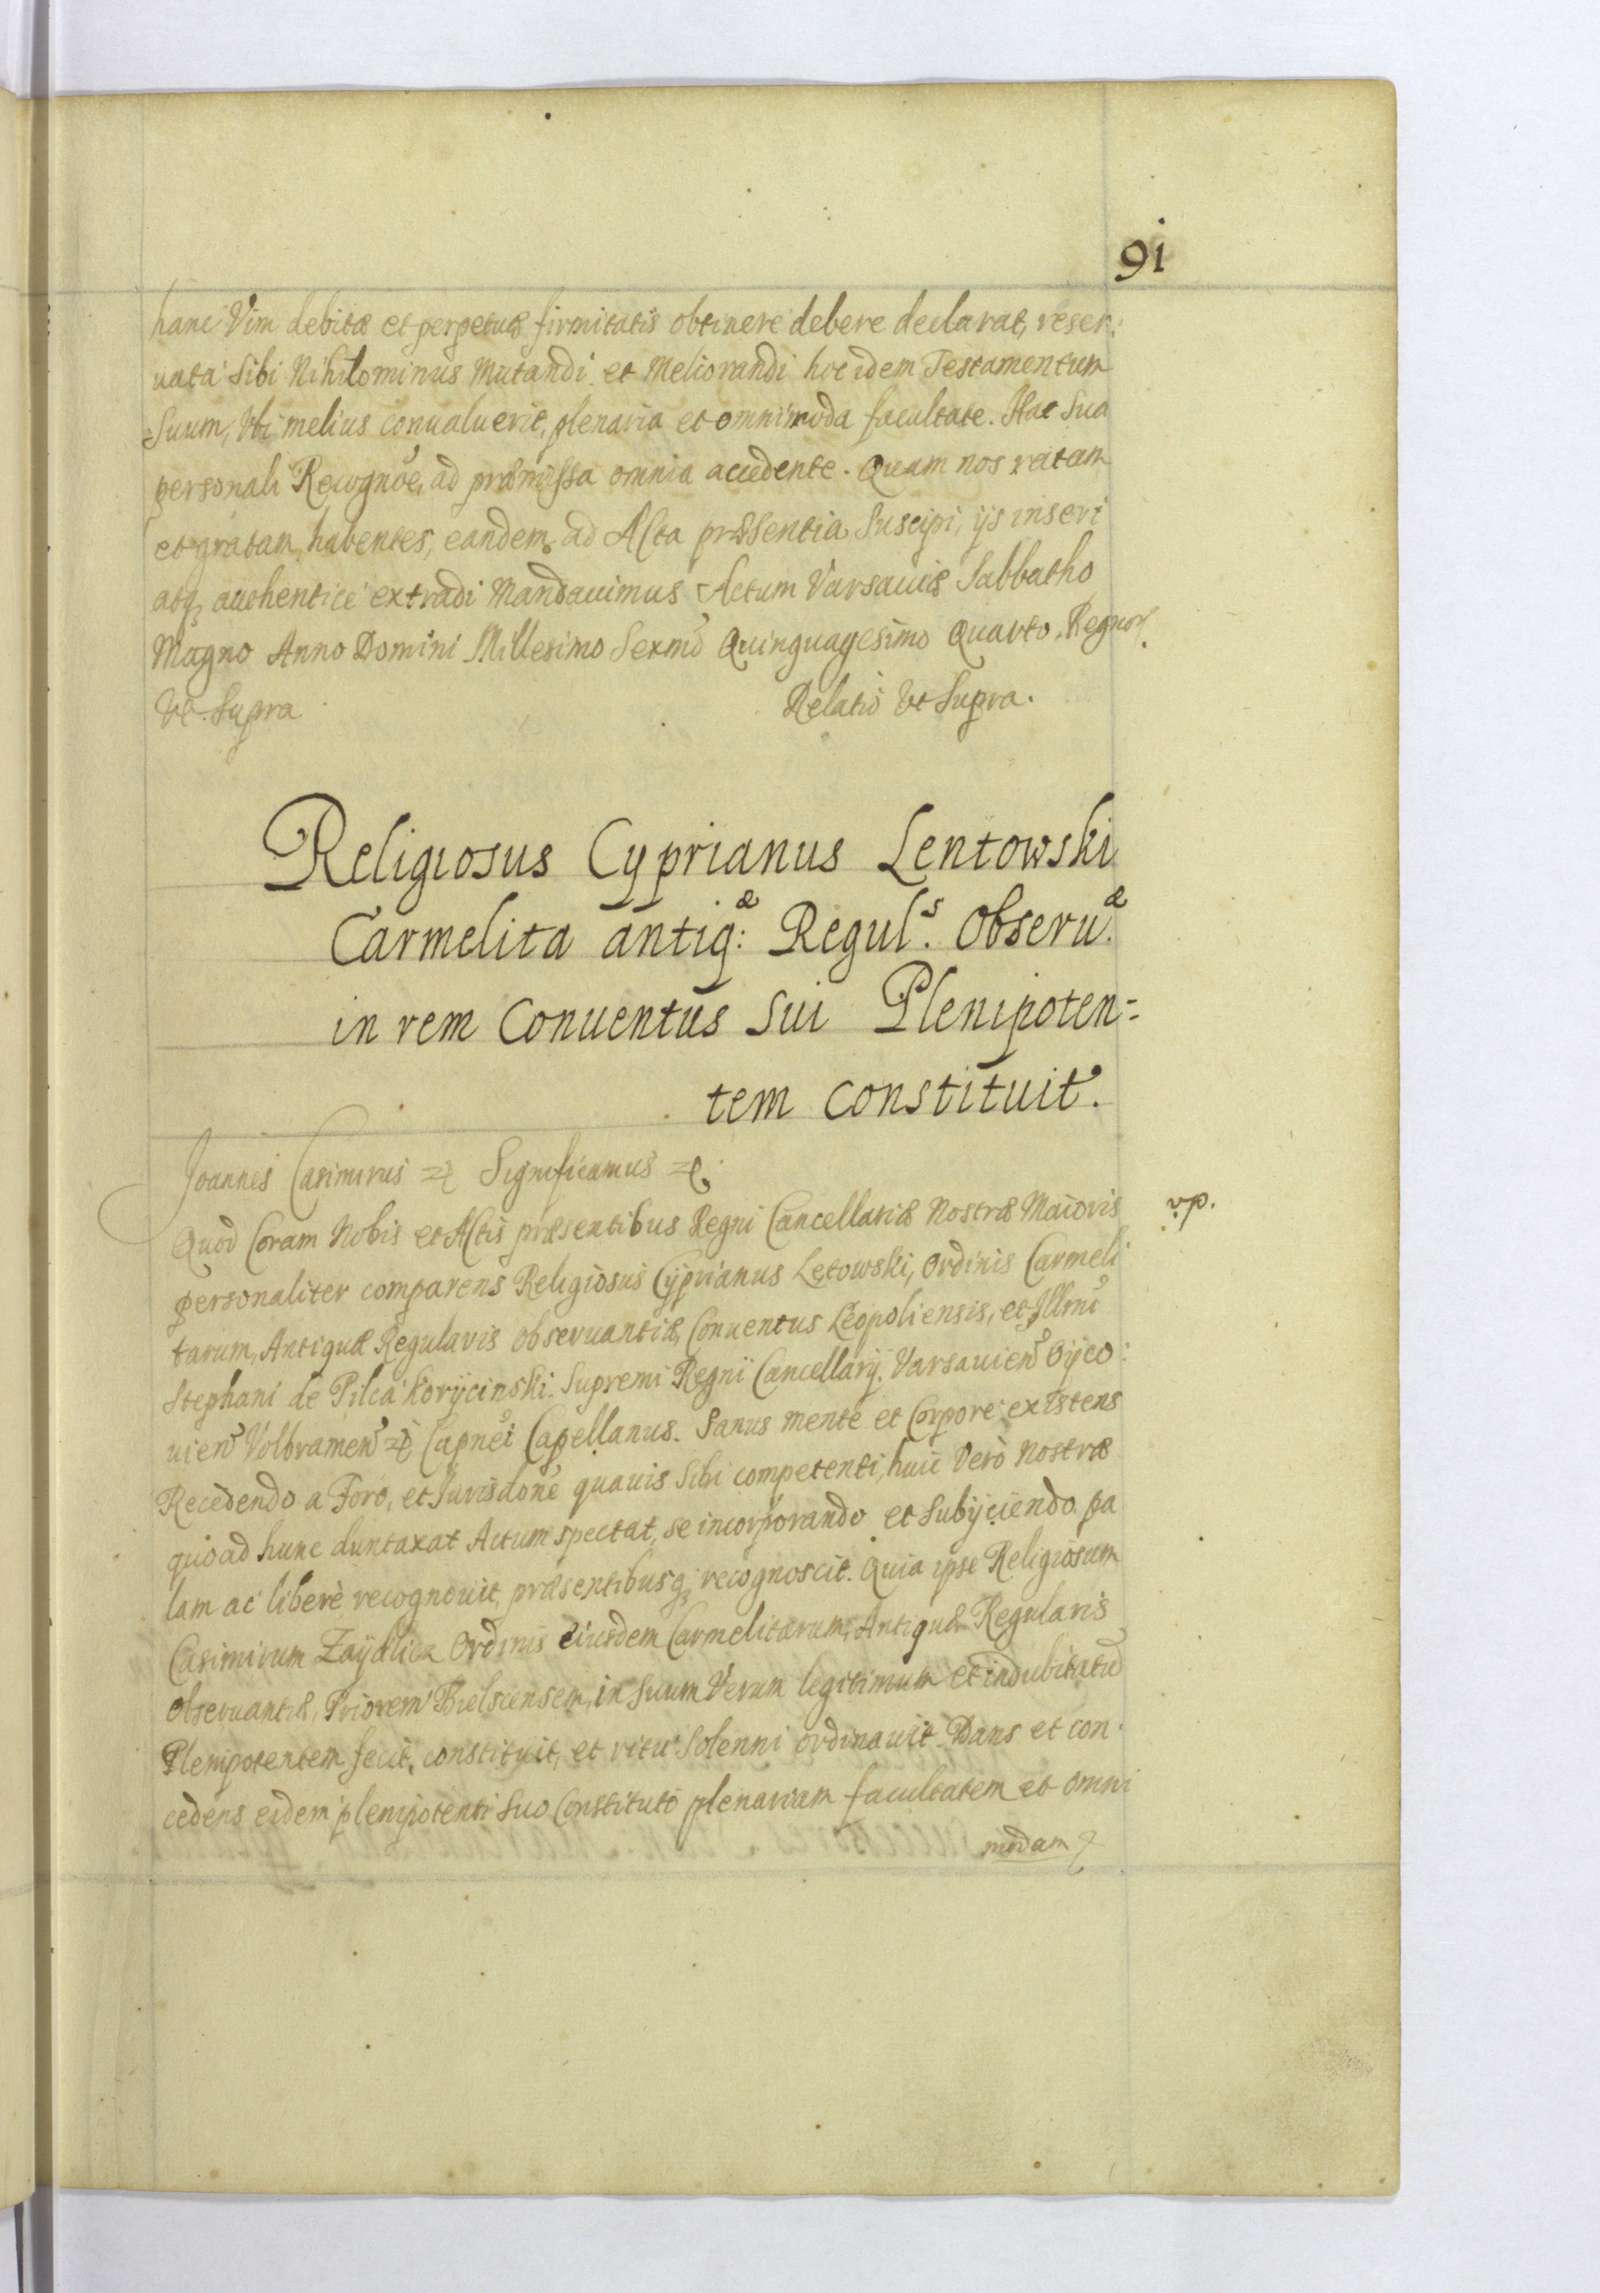 91
hanc Vim debitæ et perpetuæ firmitatis obtinere debere declarat, reser:
uata Sibi Nihilominus Mutandi et Meliorandi hoc idem Testamentum
Suum, Vbi melius conualuerit, plenaria et omnimoda facultate. Hac Sua
personali Recognõe, ad præmissa omnia accedente. Quam nos ratam
et gratam habentes, eandem ad Acta præsentia Suscipi, ijs inseri
atq, authentice extradi Mandauimus Actum Varsauiæ Sabbatho
Magno Anno Domini Millesimo Sexmo Quinquagesimo Quarto. Regnor
Vt Supra Relatio Vt Supra.
Religiosus Cyprianus Lentowski
Carmelita antiq:æ Regul.s Obseru.æ
in rem Conuentus Sui Plenipoten=
tem constituit.
Joannes Casimirus Significamus
v.p.
Quod Coram Nobis et Actis præsentibus Regni Cancellariæ Nostræ Maioris
personaliter comparens Religiosus Cyprianus Lętowski, Ordinis Carmeli
tarum, Antiquæ Regularis Obseruantiæ, Conuentus Leopoliensis, et Illmi
Stephani de Pilca Koryciński Supremi Regni Cancellarij. Varsauien Oyco:
uien Volbramen Capnei Capellanus. Sanus mente et Corpore existens
Recedendo a Foro, et Jurisdone quauis Sibi competenti, huic Verò Nostræ
quoad hunc duntaxat Actum spectat, se incorporando et Subijciendo pa
lam ac liberè recognouit, præsentibusq, recognoscit. Quia ipse Religiosum
Casimirum Zaydlicz Ordinis eiusdem Carmelitarum, Antiquæ Regularis
Obseruantiæ, Priorem Bielscensem, in Suum Verum legitimum et indubitatũ
Plenipotentem fecit, constituit, et ritu Solenni ordinauit. Dans et con:
cedens eidem plenipotenti Suo Constituto plenariam facultatem et omni
modam